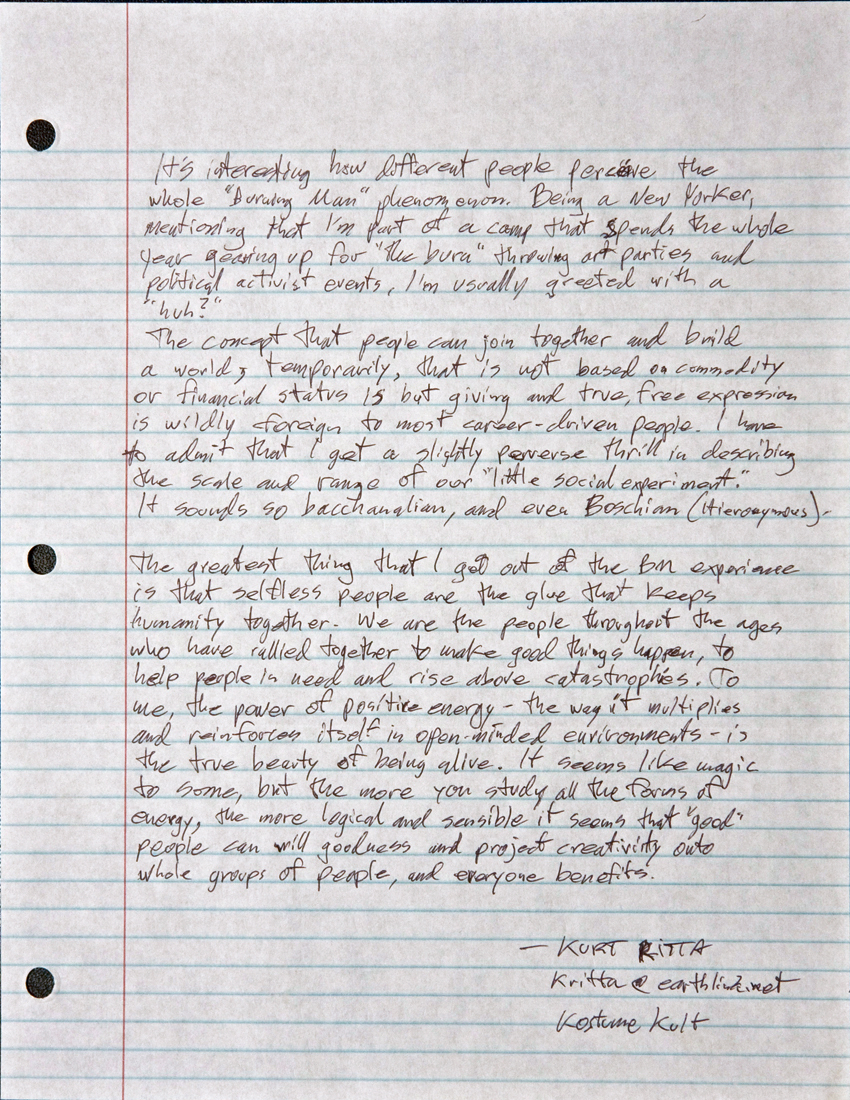 It's interesting how different people perceive the
whole "Burning Man" phenomenon. Being a New Yorker,
mentioning that I'm part of a camp that spends the whole
year gearing up for "the burn" throwing art parties and
political activist events, I'm usually greeted with a
"huh?"
The concept that people can join together and build
a world, temporarily, that is not based on commodity
or financial status is but giving and true, free expression
is wildly foreign to most career-driven people. I have
to admit that I get a slightly perverse thrill in describing
the scale and range of our "little social experiment."
It sounds so bacchanalian, and even Boschian (Hieronymous).
The greatest thing that I get out of the BM experience
is that selfless people are the glue that keeps
humanity together. We are the people throughout the ages
who have rallied together to make good things happen, to
help people in need and rise above catastrophies. To
me, the power of positive energy - the way it multiplies
and reinforces itself in open-minded environments - is
the true beauty of being alive. It seems like magic
to some, but the more you study all the forms of
energy, the more logical and sensible it seems that "good"
people can will goodness and project creativity onto
whole groups of people, and everyone benefits.
— KURT RITTA
Kritta@earthlink.net
Kostume Kult